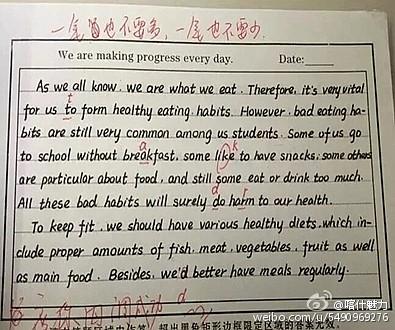 一笔画也不要多，一笔也不要少
We are making progress every day. Date:
As we all know, we are what we eat. Therefore, it's very vital
t
for us to form healthy eating habits. However, bad eating ha-
bits are still very common among us students. Some of us go
a k
to school without breakfast, some like to have snacks, some others
are particular about food, and still some eat or drink too much.
d r
All these bad habits will surely do harm to our health.
To keep fit, we should have various healthy diets, which in-
clude proper amounts of fish, meat, vegetables, fruit as well
as main food. Besides, we'd better have meals regularly.
d
超出黑色矩形边框限定区域的答案无效
@喀什魅力
weibo.com/u/5490969276